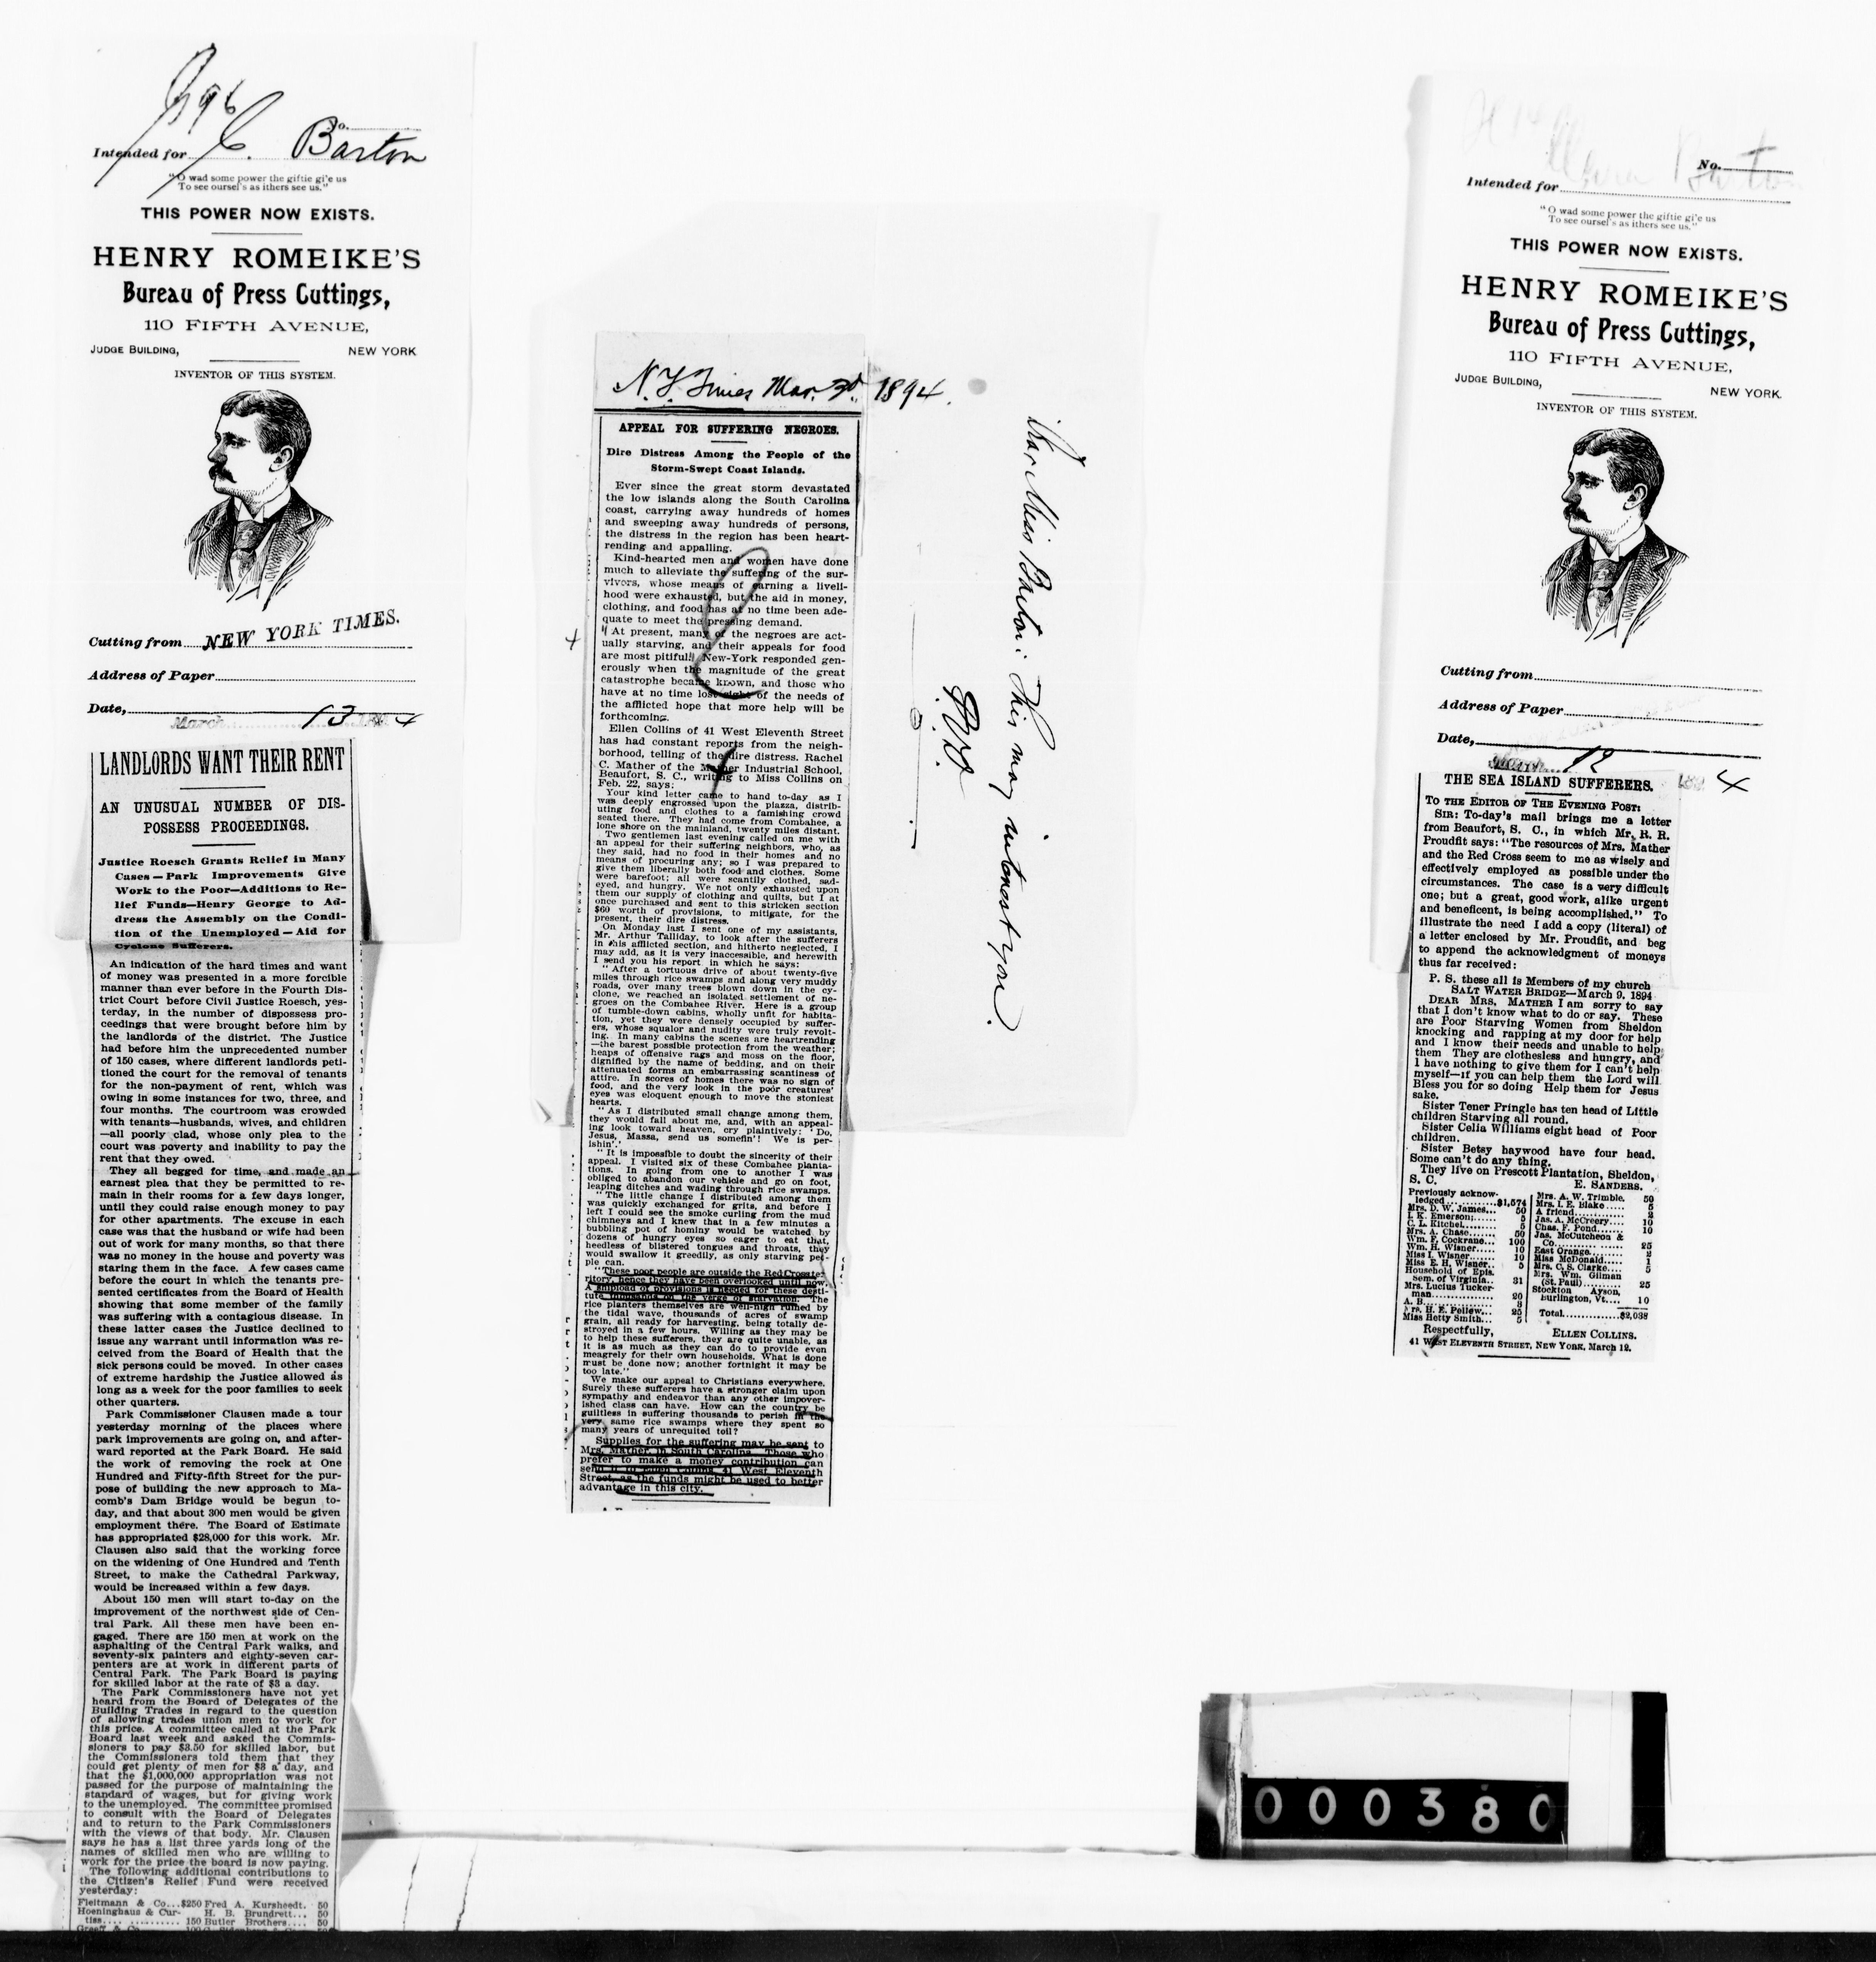 No.
Intended for C. Barton
"O wad some power the giftie gi'e us
To see oursel's as ithers see us."
THIS POWER NOW EXISTS.
HENRY ROMEIKE'S
Bureau of Press Cuttings,
110 FIFTH AVENUE,
JUDGE BUILDING, NEW YORK
INVENTOR OF THIS SYSTEM.
Cutting from NEW YORK TIMES.
Address of Paper
Date,
March 13 4
LANDLORDS WANT THEIR RENT
AN UNUSUAL NUMBER OF DIS-
POSSESS PROCEEDINGS.
Justice Roesch Grants Relief in Many
Cases—Park Improvements Give
Work to the Poor—Additions to Re-
lief Funds—Henry George to Ad-
dress the Assembly on the Condi-
tion of the Unemployed—Aid for
Cyclone Sufferers.
An indication of the hard times and want
of money was presented in a more forcible
manner than ever before in the Fourth Dis-
trict Court before Civil Justice Roesch, yes-
terday, in the number of dispossess pro-
ceedings that were brought before him by
the landlords of the district. The Justice
had before him the unprecedented number
of 150 cases, where different landlords peti-
tioned the court for the removal of tenants
for the non-payment of rent, which was
owing in some instances for two, three, and
four months. The courtroom was crowded
with tenants—husbands, wives, and children
—all poorly clad, whose only plea to the
court was poverty and inability to pay the
rent that they owed.
They all begged for time, and made an
earnest plea that they be permitted to re-
main in their rooms for a few days longer,
until they could raise enough money to pay
for other apartments. The excuse in each
case was that the husband or wife had been
out of work for many months, so that there
was no money in the house and poverty was
staring them in the face. A few cases came
before the court in which the tenants pre-
sented certificates from the Board of Health
showing that some member of the family
was suffering with a contagious disease. In
these latter cases the Justice declined to
issue any warrant until information was re-
ceived from the Board of Health that the
sick persons could be moved. In other cases
of extreme hardship the Justice allowed as
long as a week for the poor families to seek
other quarters.
Park Commissioner Clausen made a tour
yesterday morning of the places where
park improvements are going on, and after-
ward reported at the Park Board. He said
the work of removing the rock at One
Hundred and Fifty-fifth Street for the pur-
pose of building the new approach to Ma-
comb's Dam Bridge would be begun to-
day, and that about 300 men would be given
employment there. The Board of Estimate
has appropriated $28,000 for this work. Mr.
Clausen also said that the working force
on the widening of One Hundred and Tenth
Street, to make the Cathedral Parkway,
would be increased within a few days.
About 150 men will start to-day on the
improvement of the northwest side of Cen-
tral Park. All these men have been en-
gaged. There are 150 men at work on the
asphalting of the Central Park walks, and
seventy-six painters and eighty-seven car-
penters are at work in different parts of
Central Park. The Park Board is paying
for skilled labor at the rate of $3 a day.
The Park Commissioners have not yet
heard from the Board of Delegates of the
Building Trades in regard to the question
of allowing trades union men to work for
this price. A committee called at the Park
Board last week and asked the Commis-
sioners to pay $3.50 for skilled labor, but
the Commissioners told them that they
could get plenty of men for $3 a day, and
that the $1,000,000 appropriation was not
passed for the purpose of maintaining the
standard of wages, but for giving work
to the unemployed. The committee promised
to consult with the Board of Delegates
and to return to the Park Commissioners
with the views of that body. Mr. Clausen
says he has a list three yards long of the
names of skilled men who are willing to
work for the price the board is now paying.
The following additional contributions to
the Citizen's Relief Fund were received
yesterday:
Fleitmann & Co...$250 Fred A. Kursheedt. 50
Hoeninghaus & Cur- H. B. Brundrett... 50
tiss.... .......... 150 Butler Brothers.... 50
N. Y. Times Mar. 3d. 1894.
APPEAL FOR SUFFERING NEGROES.
Dire Distress Among the People of the
Storm-Swept Coast Islands.
Ever since the great storm devastated
the low islands along the South Carolina
coast, carrying away hundreds of homes
and sweeping away hundreds of persons,
the distress in the region has been heart-
rending and appalling.
Kind-hearted men and women have done
much to alleviate the suffering of the sur-
vivors, whose means of earning a liveli-
hood were exhausted, but the aid in money,
clothing, and food has at no time been ade-
quate to meet the pressing demand.
At present, many of the negroes are act-
ually starving, and their appeals for food
are most pitiful. New-York responded gen-
erously when the magnitude of the great
catastrophe became known, and those who
have at no time lost sight of the needs of
the afflicted hope that more help will be
forthcoming.
Ellen Collins of 41 West Eleventh Street
has had constant reports from the neigh-
borhood, telling of the dire distress. Rachel
C. Mather of the Mather Industrial School,
Beaufort, S. C., writing to Miss Collins on
Feb. 22, says:
Your kind letter came to hand to-day as I
was deeply engrossed upon the piazza, distrib-
uting food and clothes to a famishing crowd
seated there. They had come from Combahee, a
lone shore on the mainland, twenty miles distant.
Two gentlemen last evening called on me with
an appeal for their suffering neighbors, who, as
they said, had no food in their homes and no
means of procuring any; so I was prepared to
give them liberally both food and clothes. Some
were barefoot; all were scantily clothed, sad-
eyed, and hungry. We not only exhausted upon
them our supply of clothing and quilts, but I at
once purchased and sent to this stricken section
$60 worth of provisions, to mitigate, for the
present, their dire distress.
On Monday last I sent one of my assistants,
Mr. Arthur Talliday, to look after the sufferers
in this afflicted section, and hitherto neglected, I
may add, as it is very inaccessible, and herewith
I send you his report in which he says:
"After a tortuous drive of about twenty-five
miles through rice swamps and along very muddy
roads, over many trees blown down in the cy-
clone, we reached an isolated settlement of ne-
groes on the Combahee River. Here is a group
of tumble-down cabins, wholly unfit for habita-
tion, yet they were densely occupied by suffer-
ers, whose squalor and nudity were truly revolt-
ing. In many cabins the scenes are heartrending
—the barest possible protection from the weather;
heaps of offensive rags and moss on the floor,
dignified by the name of bedding, and on their
attenuated forms an embarrassing scantiness of
attire. In scores of homes there was no sign of
food, and the very look in the poor creatures'
eyes was eloquent enough to move the stoniest
hearts.
"As I distributed small change among them,
they would fall about me, and, with an appeal-
ing look toward heaven, cry plaintively: 'Do,
Jesus, Massa, send us somefin'! We is per-
ishin'.'
"It is impossible to doubt the sincerity of their
appeal. I visited six of these Combahee planta-
tions. In going from one to another I was
obliged to abandon our vehicle and go on foot,
leaping ditches and wading through rice swamps.
"The little change I distributed among them
was quickly exchanged for grits, and before I
left I could see the smoke curling from the mud
chimneys and I knew that in a few minutes a
bubbling pot of hominy would be watched by
dozens of hungry eyes so eager to eat that,
heedless of blistered tongues and throats, they
would swallow it greedily, as only starving peo-
ple can.
"These poor people are outside the Red Cross ter-
ritory, hence they have been overlooked until now.
A shipload of provisions is needed for these desti-
tute thousands on the verge of starvation. The
rice planters themselves are well-nigh ruined by
the tidal wave, thousands of acres of swamp
grain, all ready for harvesting, being totally de-
stroyed in a few hours. Willing as they may be
to help these sufferers, they are quite unable, as
it is as much as they can do to provide even
meagrely for their own households. What is done
must be done now; another fortnight it may be
too late."
We make our appeal to Christians everywhere.
Surely these sufferers have a stronger claim upon
sympathy and endeavor than any other impover-
ished class can have. How can the country be
guiltless in suffering thousands to perish in the
very same rice swamps where they spent so
many years of unrequited toil?
Supplies for the suffering may be sent to
Mrs. Mather, in South Carolina. Those who
prefer to make a money contribution can
send it to Ellen Collins, 41 West Eleventh
Street, as the funds might be used to better
advantage in this city.
Dear Miss Barton: This may interest you.
Clara Barton
No.
Intended for
"O wad some power the giftie gi'e us
To see oursel's as ithers see us."
THIS POWER NOW EXISTS.
HENRY ROMEIKE'S
Bureau of Press Cuttings,
110 FIFTH AVENUE,
JUDGE BUILDING, NEW YORK.
INVENTOR OF THIS SYSTEM.
Cutting from
Address of Paper
Date,
March 12 189 4
THE SEA ISLAND SUFFERERS.
TO THE EDITOR OF THE EVENING POST:
SIR: To-day's mail brings me a letter
from Beaufort, S. C., in which Mr. R. R.
Proudfit says: "The resources of Mrs. Mather
and the Red Cross seem to me as wisely and
effectively employed as possible under the
circumstances. The case is a very difficult
one; but a great, good work, alike urgent
and beneficent, is being accomplished." To
illustrate the need I add a copy (literal) of
a letter enclosed by Mr. Proudfit, and beg
to append the acknowledgment of moneys
thus far received:
P. S. these all is Members of my church
SALT WATER BRIDGE—March 9, 1894
DEAR MRS. MATHER I am sorry to say
that I don't know what to do or say. These
are Poor Starving Women from Sheldon
knocking and rapping at my door for help
and I know their needs and unable to help
them They are clothesless and hungry, and
I have nothing to give them for I can't help
myself—if you can help them the Lord will
Bless you for so doing Help them for Jesus
sake.
Sister Tener Pringle has ten head of Little
children Starving all round.
Sister Celia Williams eight head of Poor
children.
Sister Betsy haywood have four head.
Some can't do any thing.
They live on Prescott Plantation, Sheldon,
S. C. E. SANDERS.
Previously acknow-
ledged..........$1,574
Mrs. D. W. James... 50
I. K. Emerson...... 5
C. L. Kitchel........ 5
Mrs. A. Chase...... 50
Wm. F. Cockrane... 100
Wm. H. Wisner..... 10
Miss I. Wisner...... 10
Miss E. H. Wisner.. 5
Household of Epis.
Sem. of Virginia.. 31
Mrs. Lucius Tucker-
man.............. 20
A. B............... 3
Mrs. H. E. Pellew... 25
Miss Hetty Smith... 5
Mrs. A. W. Trimble. 50
Mrs. I. E. Blake..... 5
A friend............ 2
Jas. A. McCreery... 10
Chas. F. Pond...... 10
Jas. McCutcheon &
Co............... 25
East Orange........ 2
Miss McDonald..... 1
Mrs. C. S. Clarke... 5
Mrs. Wm. Gilman
(St. Paul)......... 25
Stockton Ayson,
Burlington, Vt.... 10
Total............$2,038
Respectfully, ELLEN COLLINS.
41 WEST ELEVENTH STREET, NEW YORK, March 12.
000380